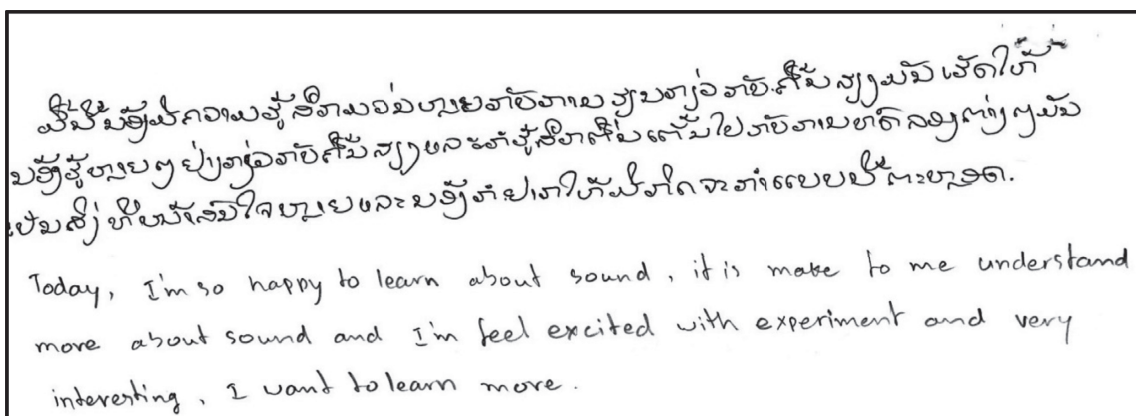 ມື້ນີ້ນ້ອງມີຄວາມຮູ້ສຶກມ່ວນຫຼາຍກັບການຮຽນກ່ຽວກັບຄື້ນສຽງມັນເຮັດໃຫ້
ນ້ອງຮູ້ຫຼາຍໆຢ່າງກ່ຽວກັບຄື້ນສຽງແລະກໍຮູ້ສຶກຕື່ນເຕັ້ນໄປກັບການທົດລອງຕ່າງໆມັນ
ເປັນສິ່ງທີ່ໜ້າສົນໃຈຫຼາຍແລະນ້ອງກໍຢາກໃຫ້ມີກິດຈະກຳແບບນີ້ຕະຫຼອດ.
Today, I'm so happy to learn about sound, it is make to me understand
more about sound and I'm feel excited with experiment and very
interesting, I want to learn more.